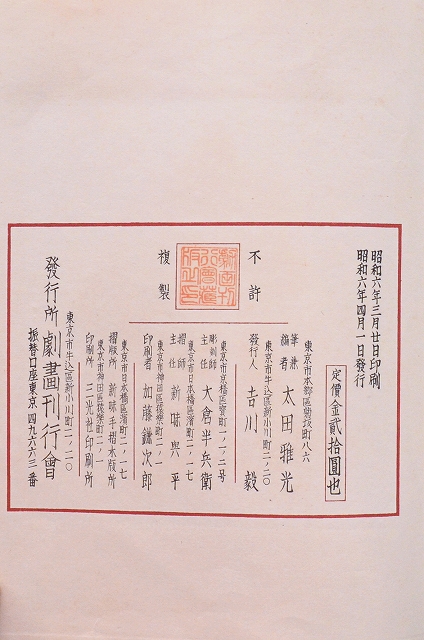 昭和六年三月廿日印刷
昭和六年四月一日發行
定價金貳拾圓也
不許
複製
東京市本郷區駒込町八六
筆兼編者 太田雅光
東京市牛込區新小川町二ノ二〇
發行人 吉川毅
東京市京橋區 町一ノ二号
彫刻師主任 大倉半兵衛
東京市日本橋區濱町二ノ一七
摺師主任 新味與平
東京市神田區猿樂町二ノ一
印刷者 加藤鎌次郎
東京市日本橋區濱町二ノ一七
摺版所 新味手摺木版所
東京市神田區猿樂町二ノ一
印刷所 三光社印刷所
東京市牛込區新小川町二ノ二〇
發行所 劇畫刊行會
振替口座東京四九六六三番